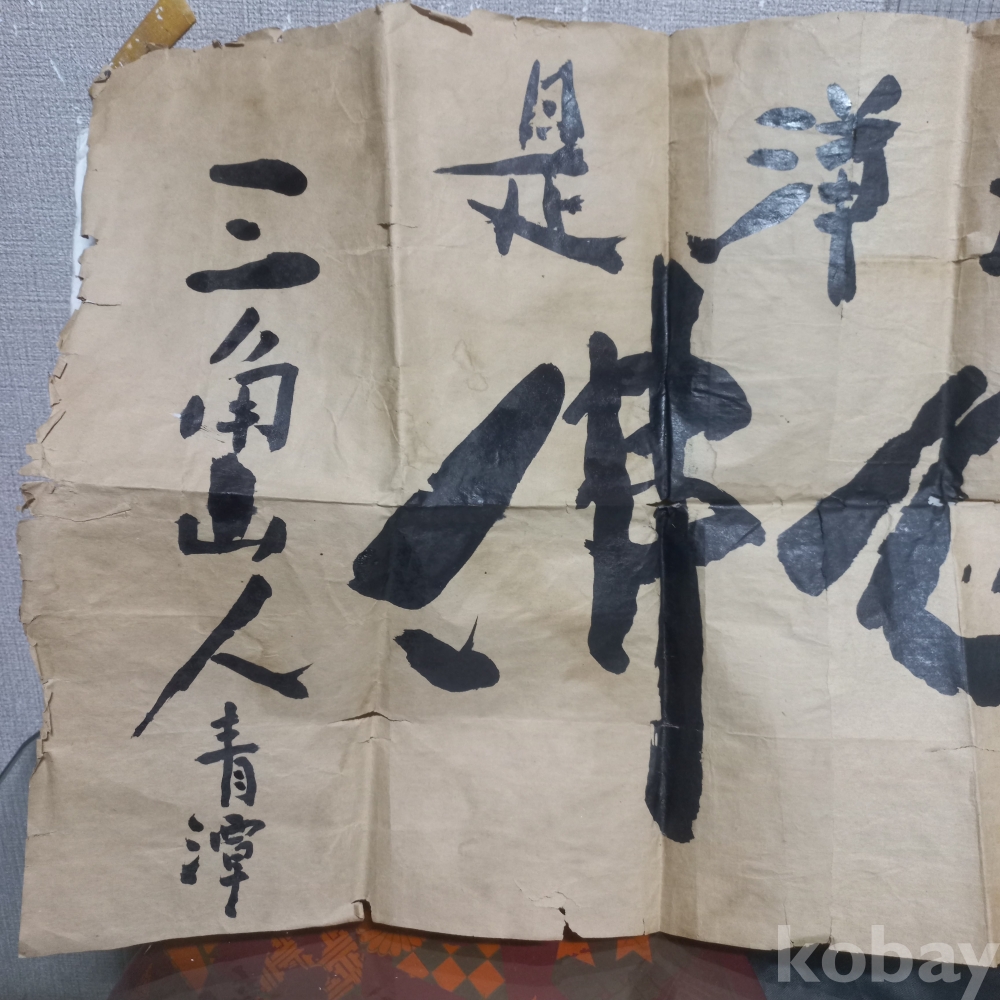 洋是
心佛
三角山人青潭
kobay